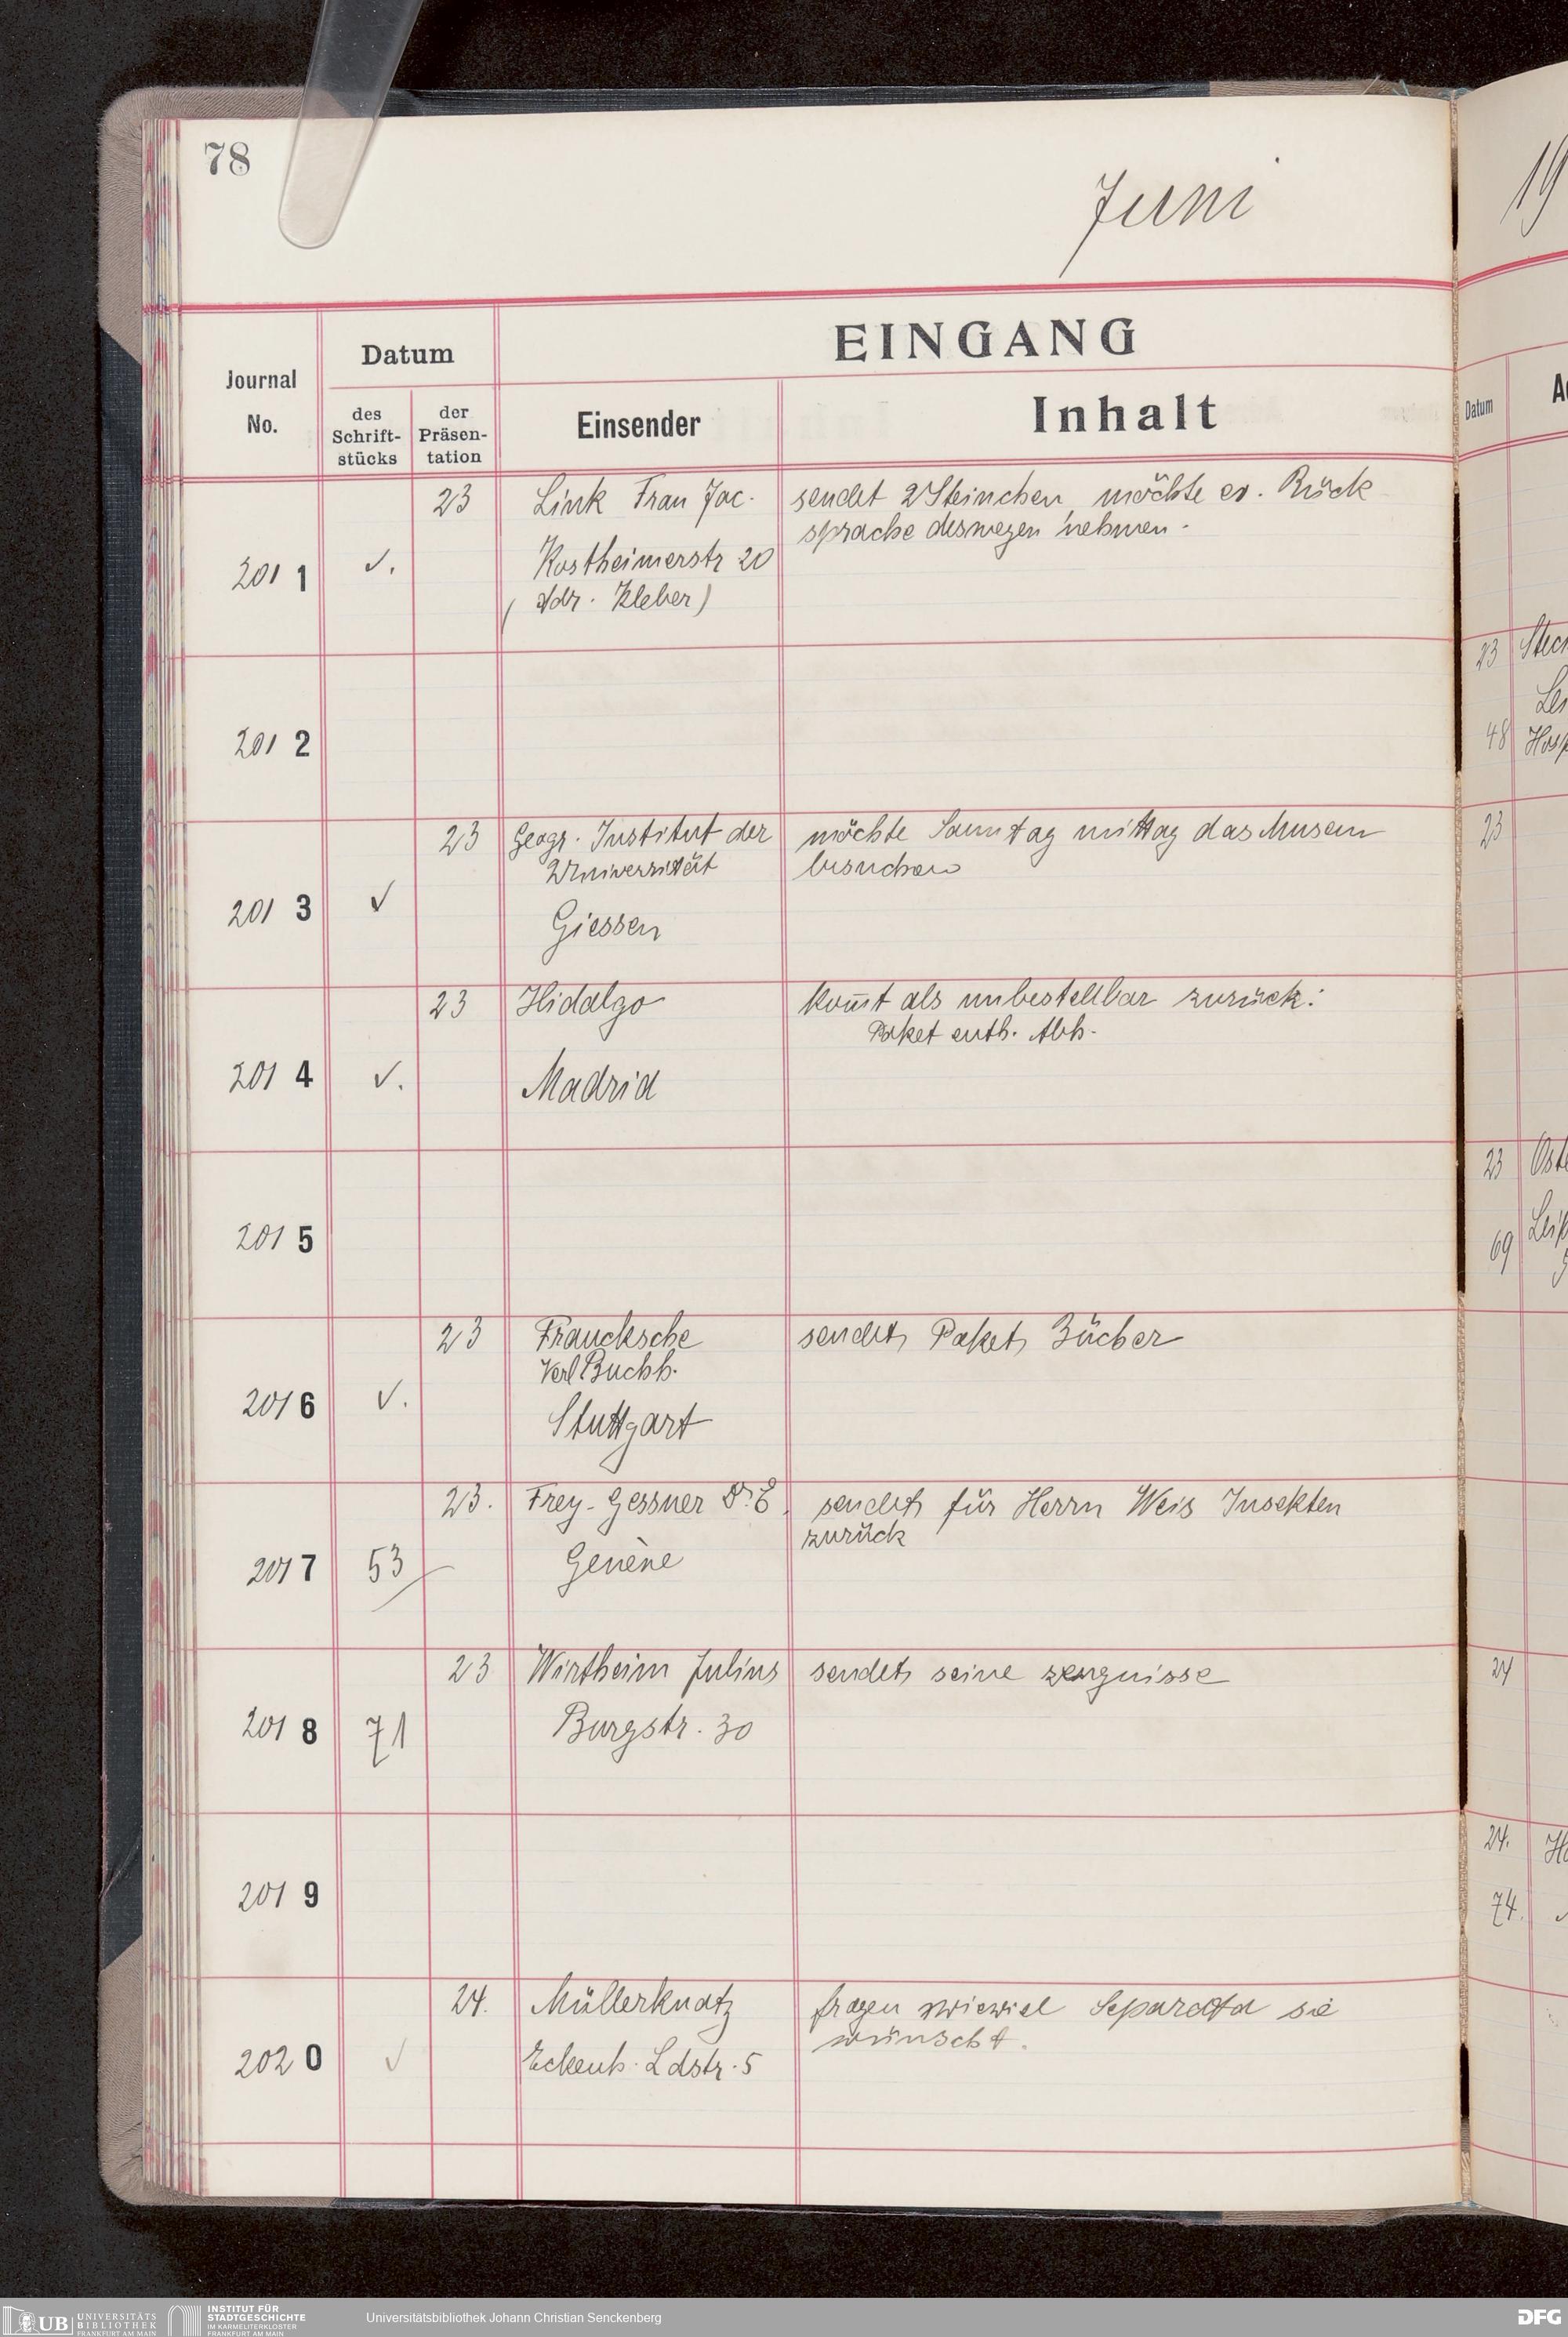 78
Juni
19
EINGANG
Journal No.
Datum
des Schrift-stücks
der Präsen-tation
Einsender
Inhalt
Datum
201 1
✓.
23
Link Frau Jac.
Kostheimerstr 20
( Adr. Kleber)
sendet 2 Steinchen, möchte ev. Rück
sprache deswegen nehmen.
201 2
23
48
201 3
✓
23
Geogr. Institut der
Universität
Giessen
möchte Sonntag mittag das Museum
besuchen
23
201 4
✓.
23
Hidalgo
Madrid
kom̅t als unbestellbar zurück:
Paket enth. Abh.
201 5
23
69
201 6
✓.
23
Francksche
Verl Buchh.
Stuttgart
sendet Paket Bücher
201 7
53
23.
Frey-Gessner Dr. E.
Genène
sendet für Herrn Weis Insekten
zurück
201 8
71
23
Wirtheim Julius
Burgstr. 30
sendet seine zeugnisse
24
201 9
24.
74.
202 0
✓
24.
Müllerknatz
Eckenh. Ldstr. 5
fragen wieviel Separata sie
wünscht.
UB UNIVERSITÄTS
BIBLIOTHEK
FRANKFURT AM MAIN
INSTITUT FÜR
STADTGESCHICHTE
IM KARMELITERKLOSTER
FRANKFURT AM MAIN
Universitätsbibliothek Johann Christian Senckenberg
DFG